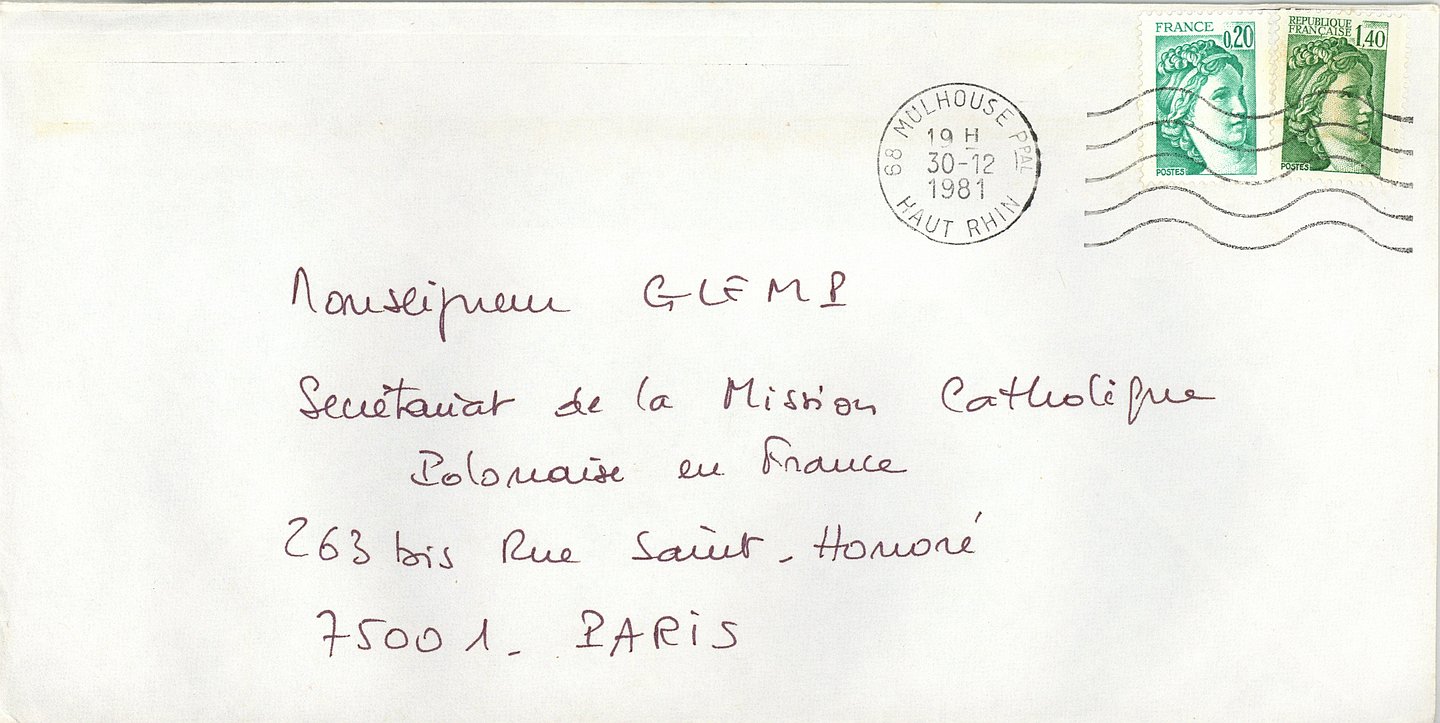 FRANCE 0,20
POSTES
REPUBLIQUE
FRANÇAISE 1,40
POSTES
68 MULHOUSE PPAL
19 H
30-12
1981
HAUT RHIN
Monseigneur GLEMP
Secrétariat de la Mission Catholique
Polonaise en France
263 bis Rue Saint-Honoré
75001 - PARIS